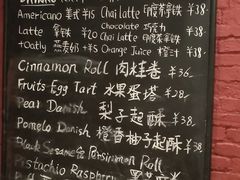 Americano 美式 ¥15 Chai Latte 印度茶拿铁 ¥38
Chocolate 巧克力
Latte 拿铁 ¥20 Chai Latte 印度茶拿铁 ¥38
+Oatly 燕麦奶 +¥5 Orange Juice 橙汁 ¥38
Cinnamon Roll 肉桂卷 ¥36
Fruits Egg Tart 水果蛋塔 ¥28
Pear Danish 梨子起酥 ¥38
Pomelo Danish 橙香柚子起酥 ¥38
Black Sesame & Persimmon Roll
Pistachio Raspberry